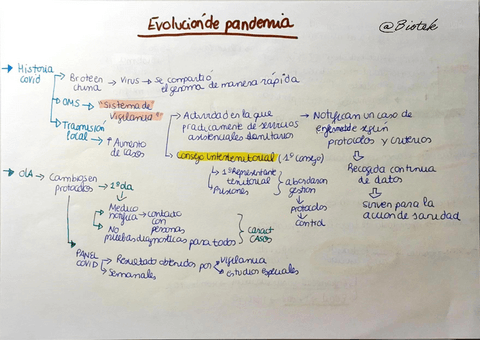 Evolución de pandemia
@Biotek
Historia covid
Brote en china → Virus → Se compartió el genoma de manera rápida
OMS → "Sistema de Vigilancia"
Trasmisión local → ↑ Aumento de casos
Actividad en la que practicamente de servicios asistenciales sanitarios
Consejo Interterritorial (1º Consejo)
1º Representante territorial
Pusiones
abordaron gestion
protocolos
control
Notifican un caso de enfermedad según protocolos y criterios
Recogida continua de datos
Sirven para la accion de sanidad
OLA → Cambios en protocolos → 1º ola
Medico notifica → contacto con personas
No pruebas diagnosticas para todos
Caract CASOS
PANEL COVID
Resultado obtenidos por
Vigilancia
estudios especiales
Semanales